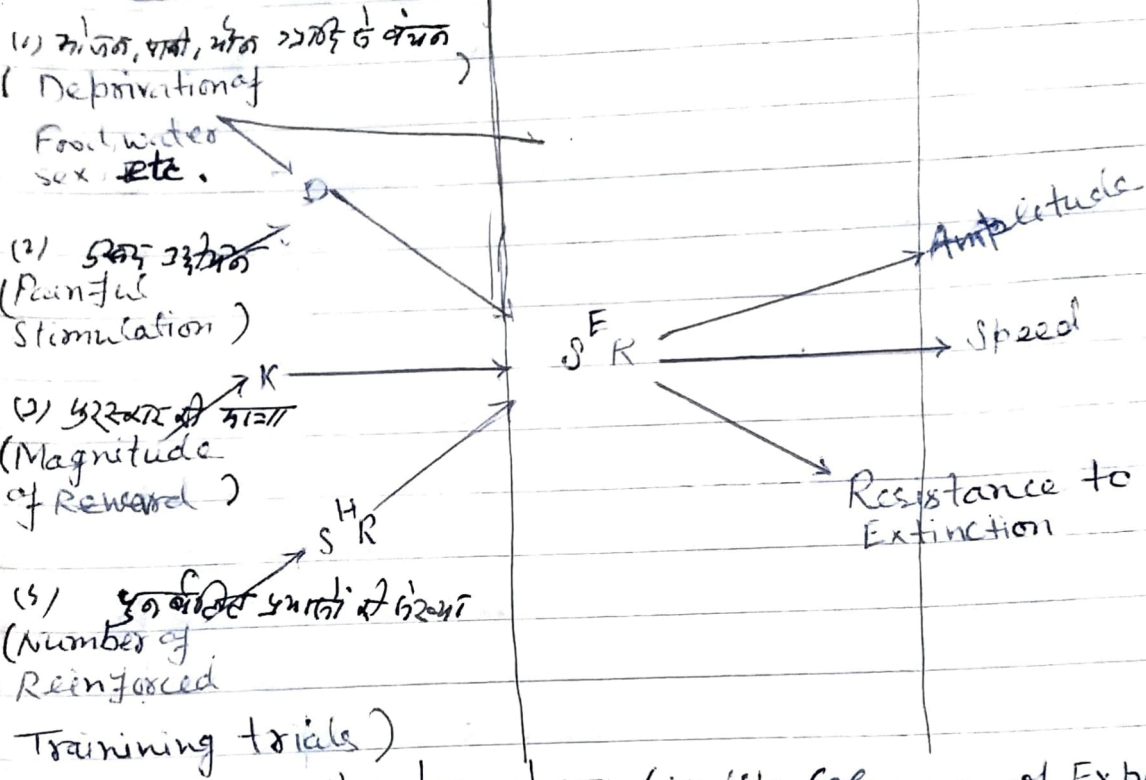 (1) भोजन, पानी, यौन आदि से वंचन
( Deprivation of )
Food, water
sex etc.
D
(2) दुखद उद्दीपन
(Painful
Stimulation )
K
(3) पुरस्कार की मात्रा
(Magnitude
of Reward )
SHR
पुनर्बलित प्रयासों की संख्या
(Number of
Reinforced
Trainining trials)
SER
Amplitude
Speed
Resistance to
Extinction